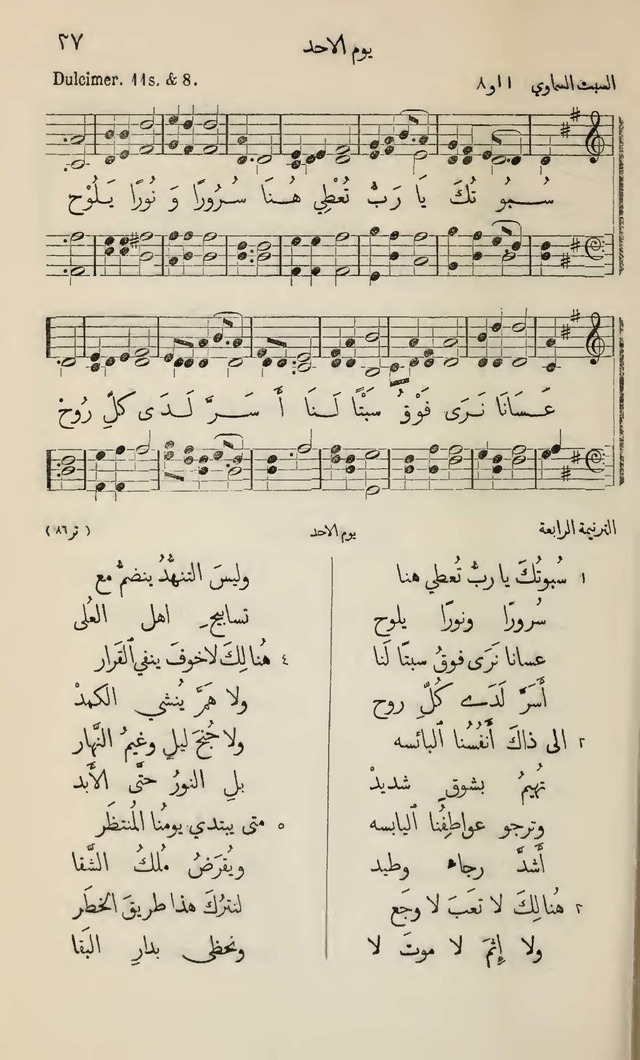 ٢٧
يوم الاحد
Dulcimer. 11s. & 8.
السبت السماوي ١١ و ٨
سُبُو تُكَ يَا رَبُّ تُعْطِي هُنَا سُرُورًا وَ نُورًا يَلُوحْ
عَسَانَا نَرَى فَوْقُ سَبْتًا لَنَا أَسَرَّ لَدَى كلِّ رُوحْ
الترنيمة الرابعة
يوم الاحد
( تر ٨٦ )
١ سُبوتُكَ يا ربُّ تُعطي هنا
سُرورًا ونورًا يلوح
عسانا نَرَى فوقُ سبتًا لَنا
أَسَرَّ لَدَے كُلِّ روح
٢ الى ذاكَ أَنفُسُنا البائسه
تَهيمُ بشوقٍ شديدْ
وترجو عواطِفُنا اليابسه
أَشدَّ رجاءٍ وطيد
٢ هُنالِكَ لا تعَبَ لا وجَع
ولا إِثمَ لا موتَ لا
وليسَ التنهُّدُ ينضمُّ مع
تسابيحِ اهل العُلى
٤ هُنالِكَ لاخوفَ ينفي القَرار
ولا همَّ يُنشي الكمدْ
ولا جُنحَ ليلٍ وغيمُ النَّهار
بلِ النورُ حتَّى الأَبد
٥ متى يبتدي يومُنا المُنتظَر
ويُقرَضُ مُلكُ الشَّقا
لنترُكَ هذا طريقَ الخطَر
ونحظى بدارِ البَقا